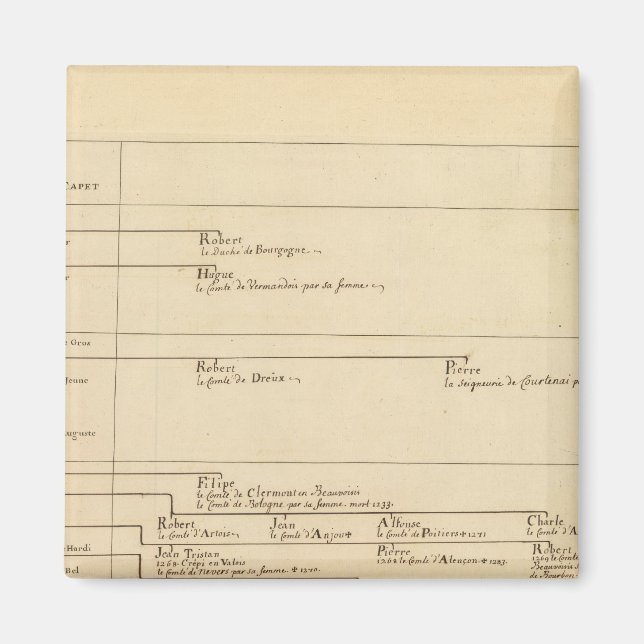 CAPET
Robert
le Duché de Bourgogne
Hugue
le Comté de Vermandois par sa femme
Gros
Robert
le Comté de Dreux
Pierre
la Seigneurie de Courtenai p
Jeune
uguste
Filipe
le Comté de Clermont en Beauvoisis
le Comté de Bologne par sa femme. mort 1233.
Robert
le Comté d'Artois
Jean
le Comté d'Anjou ✝
Alfonse
le Comté de Poitiers ✝ 1271
Charle
le Comté d'A
Hardi
Jean Tristan
1268. Crépi en Valois
le Comté de Nevers par sa femme ✝ 1270.
Pierre
1268 le Comté d'Alençon ✝ 1283.
Robert
1269 le Comté
Beauvoisis
de Bourbon
Bel